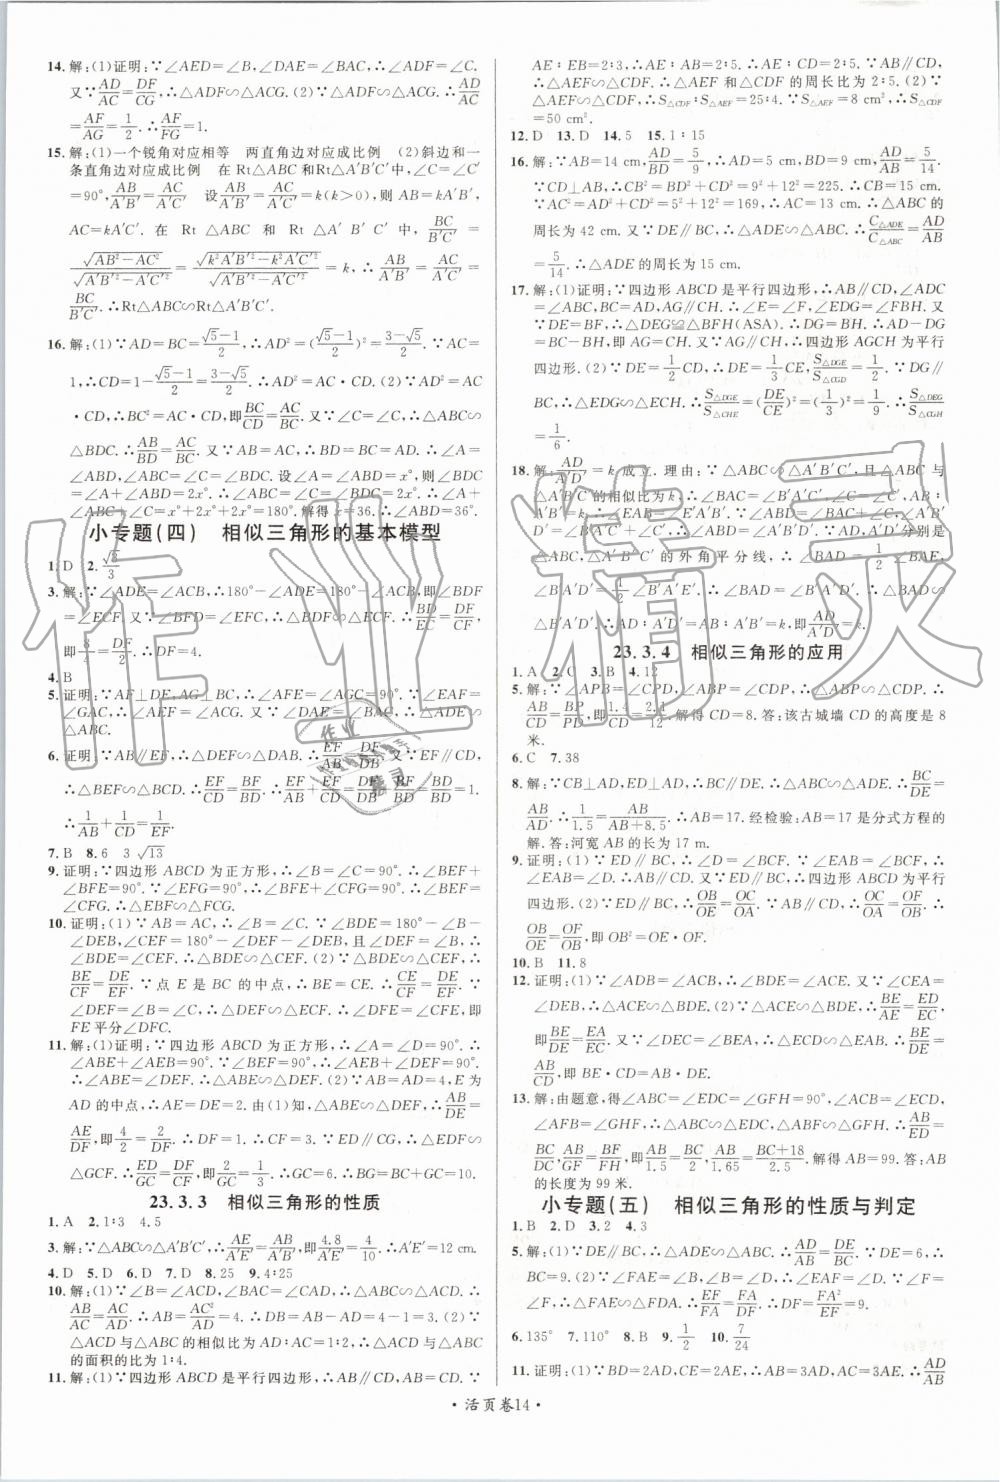 14.解:(1)证明:∵∠AED=∠B,∠DAE=∠BAC,∴∠ADF=∠C.
又∵AD/AC=DF/CG,∴△ADF∽△ACG.(2)∵△ADF∽△ACG,∴AD/AC=
AF/AG=1/2.∴AF/FG=1.
15.解:(1)一个锐角对应相等 两直角边对应成比例 (2)斜边和一
条直角边对应成比例 在Rt△ABC和Rt△A′B′C′中,∠C=∠C′
=90°,AB/A′B′=AC/A′C′. 设AB/A′B′=AC/A′C′=k(k>0),则AB=kA′B′,
AC=kA′C′.在Rt△ABC和Rt△A′B′C′中,BC/B′C′=
√(AB²−AC²)/√(A′B′²−A′C′²)=√(k²A′B′²−k²A′C′²)/√(A′B′²−A′C′²)=k,∴AB/A′B′=AC/A′C′=
BC/B′C′.∴Rt△ABC∽Rt△A′B′C′.
16.解:(1)∵AD=BC=(√5−1)/2,∴AD²=((√5−1)/2)²=(3−√5)/2.∵AC=
1,∴CD=1−(√5−1)/2=(3−√5)/2.∴AD²=AC·CD.(2)∵AD²=AC
·CD,∴BC²=AC·CD,即BC/CD=AC/BC.又∵∠C=∠C,∴△ABC∽
△BDC.∴AB/BD=AC/BC.又∵AB=AC,∴BD=BC=AD.∴∠A=
∠ABD,∠ABC=∠C=∠BDC.设∠A=∠ABD=x°,则∠BDC=
∠A+∠ABD=2x°.∴∠ABC=∠C=∠BDC=2x°.∴∠A+
∠ABC+∠C=x°+2x°+2x°=180°.解得x=36.∴∠ABD=36°.
小专题(四) 相似三角形的基本模型
1.D 2.√3/3
3.解:∵∠ADE=∠ACB,∴180°−∠ADE=180°−∠ACB,即∠BDF
=∠ECF.又∵∠BFD=∠EFC,∴△BDF∽△ECF.∴BD/EC=DF/CF,
即8/4=DF/2.∴DF=4.
4.B
5.证明:∵AF⊥DE,AG⊥BC,∴∠AFE=∠AGC=90°.∵∠EAF=
∠GAC,∴△AFE∽△AGC.又∵∠DAE=∠BAC,∴△ADE∽
△ABC.
6.证明:∵AB∥EF,∴△DEF∽△DAB.∴EF/AB=DF/DB.又∵EF∥CD,
∴△BEF∽△BCD.∴EF/CD=BF/BD.∴EF/AB+EF/CD=DF/DB+BF/BD=BD/BD=1.
∴1/AB+1/CD=1/EF.
7.B 8.6 3√13
9.证明:∵四边形ABCD为正方形,∴∠B=∠C=90°.∴∠BEF+
∠BFE=90°.∵∠EFG=90°,∴∠BFE+∠CFG=90°.∴∠BEF=
∠CFG.∴△EBF∽△FCG.
10.证明:(1)∵AB=AC,∴∠B=∠C.∵∠BDE=180°−∠B−
∠DEB,∠CEF=180°−∠DEF−∠DEB,且∠DEF=∠B,∴
∠BDE=∠CEF.∴△BDE∽△CEF.(2)∵△BDE∽△CEF,∴
BE/CF=DE/EF.∵点E是BC的中点,∴BE=CE.∴CE/CF=DE/EF.∵
∠DEF=∠B=∠C,∴△DEF∽△ECF.∴∠DFE=∠CFE,即
FE平分∠DFC.
11.解:(1)证明:∵四边形ABCD为正方形,∴∠A=∠D=90°.∴
∠ABE+∠AEB=90°.∵∠BEF=90°,∴∠AEB+∠DEF=90°.
∴∠ABE=∠DEF.∴△ABE∽△DEF.(2)∵AB=AD=4,E为
AD的中点,∴AE=DE=2.由(1)知,△ABE∽△DEF,∴AB/DE=
AE/DF,即4/2=2/DF.∴DF=1.∴CF=3.∵ED∥CG,∴△EDF∽
△GCF.∴ED/GC=DF/CF,即2/GC=1/3.∴GC=6.∴BG=BC+GC=10.
23.3.3 相似三角形的性质
1.A 2.1∶3 4.5
3.解:∵△ABC∽△A′B′C′,∴AE/A′E′=AB/A′B′,即4.8/A′E′=4/10.∴A′E′=12 cm.
4.D 5.D 6.D 7.D 8.25 9.4∶25
10.解:(1)∵∠B=∠ACD,∠BAC=∠CAD,∴△ABC∽△ACD.∴
AB/AC=AC/AD.∴AB=AC²/AD=4.∴BD=AB−AD=4−1=3.(2)∵
△ACD与△ABC的相似比为AD∶AC=1∶2,∴△ACD与△ABC
的面积的比为1∶4.
11.解:(1)∵四边形ABCD是平行四边形,∴AB=CD,AB∥CD.∵
AE∶EB=2∶3,∴AE∶AB=2∶5.∴AE∶CD=2∶5.∵AB∥CD,
∴△AEF∽△CDF.∴△AEF和△CDF的周长比为2∶5.(2)∵
△AEF∽△CDF,∴S△CDF∶S△AEF=25∶4.∵S△AEF=8 cm²,∴S△CDF
=50 cm².
12.D 13.D 14.5 15.1∶15
16.解:∵AB=14 cm,AD/BD=5/9,∴AD=5 cm,BD=9 cm,AD/AB=5/14.
∵CD⊥AB,∴CB²=BD²+CD²=9²+12²=225.∴CB=15 cm.
∵AC²=AD²+CD²=5²+12²=169,∴AC=13 cm.∴△ABC的
周长为42 cm.又∵DE∥BC,∴△ADE∽△ABC.∴C△ADE/C△ABC=AD/AB=
5/14.∴△ADE的周长为15 cm.
17.解:(1)证明:∵四边形ABCD是平行四边形,∴AB∥CD,∠ADC
=∠ABC,AD=BC,AG∥CH.∴∠E=∠F,∠EDG=∠FBH.又∵
DE=BF,∴△DEG≌△BFH(ASA).∴DG=BH.∴AD−DG
=BC−BH,即AG=CH.又∵AG∥CH,∴四边形AGCH为平行
四边形.(2)∵DE=1/2CD,∴DE=1/3CE,S△DGE/S△CGD=1/2.∵DG∥
BC,∴△EDG∽△ECH.∴S△DGE/S△CHE=(DE/CE)²=(1/3)²=1/9.∴S△DEG/S△CGH
=1/6.
18.解:AD/A′D′=k成立.理由:∵△ABC∽△A′B′C′,且△ABC与
△A′B′C′的相似比为k,∴∠B=∠B′,∠BAC=∠B′A′C′,AB∶
A′B′=k.∴∠BAE=∠B′A′E′.又∵AD,A′D′分别是
△ABC,△A′B′C′的外角平分线,∴∠BAD=1/2∠BAE,
∠B′A′D′=1/2∠B′A′E′.∴∠BAD=∠B′A′D′.∴△BAD∽
△B′A′D′.∴AD∶A′D′=AB∶A′B′=k,即AD/A′D′=k.
23.3.4 相似三角形的应用
1.A 2.C 3.B 4.12
5.解:∵∠APB=∠CPD,∠ABP=∠CDP,∴△ABP∽△CDP.∴
AB/CD=BP/PD.∴1.4/CD=2.1/12.解得CD=8.答:该古城墙CD的高度是8
米.
6.C 7.38
8.解:∵CB⊥AD,ED⊥AD,∴BC∥DE.∴△ABC∽△ADE.∴BC/DE=
AB/AD.∴1/1.5=AB/(AB+8.5).∴AB=17.经检验:AB=17是分式方程的
解.答:河宽AB的长为17 m.
9.证明:(1)∵ED∥BC,∴∠D=∠BCF.∵∠EAB=∠BCF,∴
∠EAB=∠D.∴AB∥CD.∵ED∥BC,∴四边形ABCD是平行
四边形.(2)∵ED∥BC,∴OB/OE=OC/OA.∵AB∥CD,∴OC/OA=OF/OB.∴
OB/OE=OF/OB,即OB²=OE·OF.
10.B 11.8
12.证明:(1)∵∠ADB=∠ACB,∴∠BDE=∠ACE.又∵∠CEA=
∠DEB,∴△ACE∽△BDE.(2)∵△ACE∽△BDE,∴BE/AE=ED/EC,
即BE/DE=EA/EC.又∵∠BEA=∠DEC,∴△ABE∽△DCE.∴BE/DE=
AB/CD,即BE·CD=AB·DE.
13.解:由题意,得∠ABC=∠EDC=∠GFH=90°,∠ACB=∠ECD,
∠AFB=∠GHF,∴△ABC∽△EDC,△ABF∽△GFH.∴AB/ED=
BC/DC,AB/GF=BF/FH,即AB/1.65=BC/2,AB/1.65=(BC+18)/2.5.解得AB=99.答:AB
的长度为99米.
小专题(五) 相似三角形的性质与判定
1.B 2.D 3.2 4.3
5.解:(1)∵DE∥BC,∴△ADE∽△ABC.∴AD/AB=DE/BC.∵DE=6,∴
BC=9.(2)∵∠FAE=∠B,DE∥BC,∴∠EAF=∠D.又∵∠F=
∠F,∴△FAE∽△FDA.∴EF/FA=FA/DF.∴DF=FA²/EF=9.
6.135° 7.110° 8.B 9.1/2 10.7/24
11.证明:(1)∵BD=2AD,CE=2AE,∴AB=3AD,AC=3AE.∴AD/AB
·活页卷14·